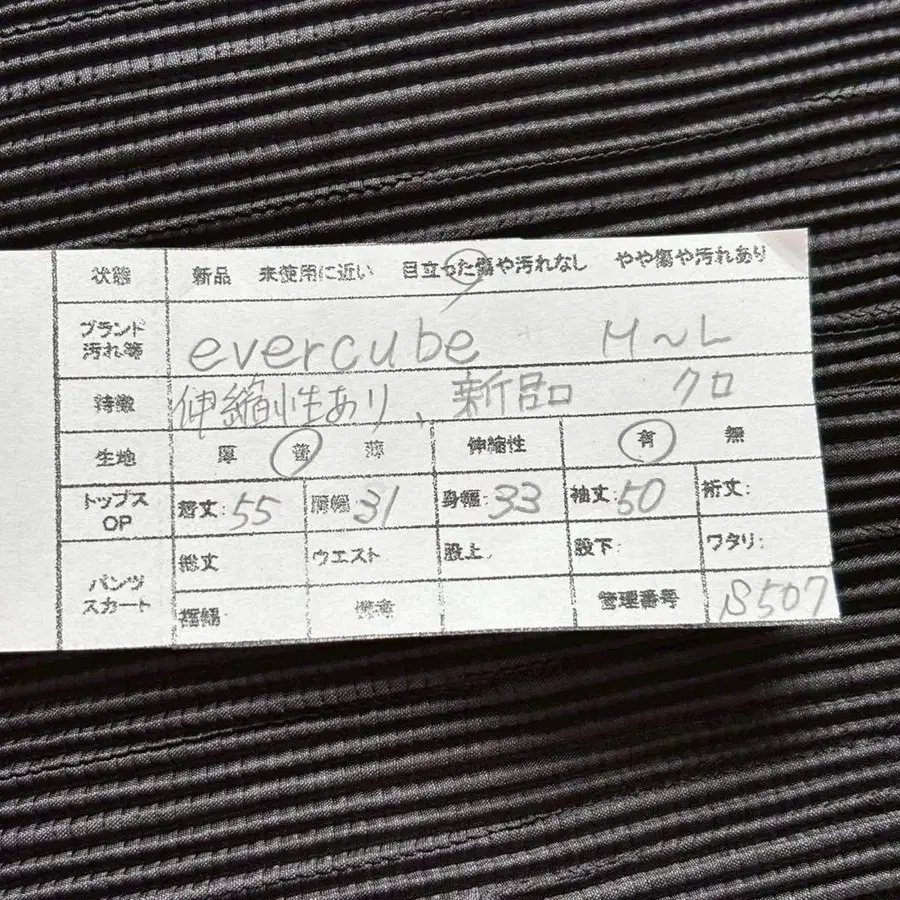 状態 新品 未使用に近い 目立った傷や汚れなし やや傷や汚れあり
ブランド
汚れ等
evercube M～L
特徴 伸縮性あり、新品 クロ
生地 厚 普 薄 伸縮性 有 無
トップス
OP
着丈:55 肩幅 31 身幅:33 袖丈:50 裄丈:
パンツ
スカート
総丈 ウエスト 股上 股下: ワタリ:
裾幅: 備考 管理番号 S507